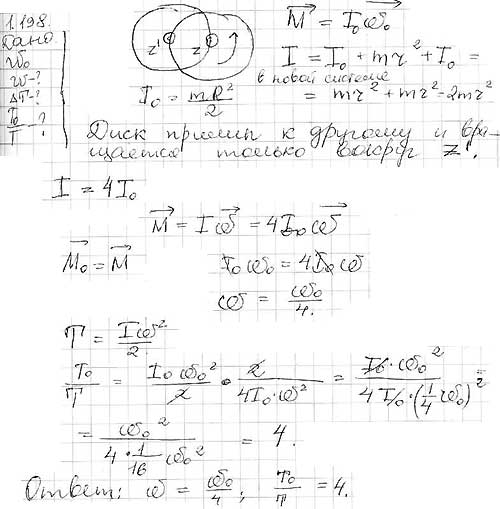 1.198.
Дано
ω₀
ω-?
ΔT-?
T₀/T -?
z' z
M⃗ = I₀ω⃗₀
I = I₀ + mr² + I₀ =
в новой системе
= mr² + mr² = 2mr²
I₀ = mR²/2
Диск прилип к другому и вра-
щается только вокруг z'.
I = 4I₀
M⃗ = Iω⃗ = 4I₀ω⃗
M⃗₀ = M⃗
I₀ω₀ = 4I₀ω
ω = ω₀/4.
T = Iω²/2
T₀/T = I₀ω₀²/2 · 2/4I₀·ω² = I₀·ω₀²/4I₀·(1/4 ω₀)² =
= ω₀²/4·1/16 ω₀² = 4.
Ответ: ω = ω₀/4; T₀/T = 4.